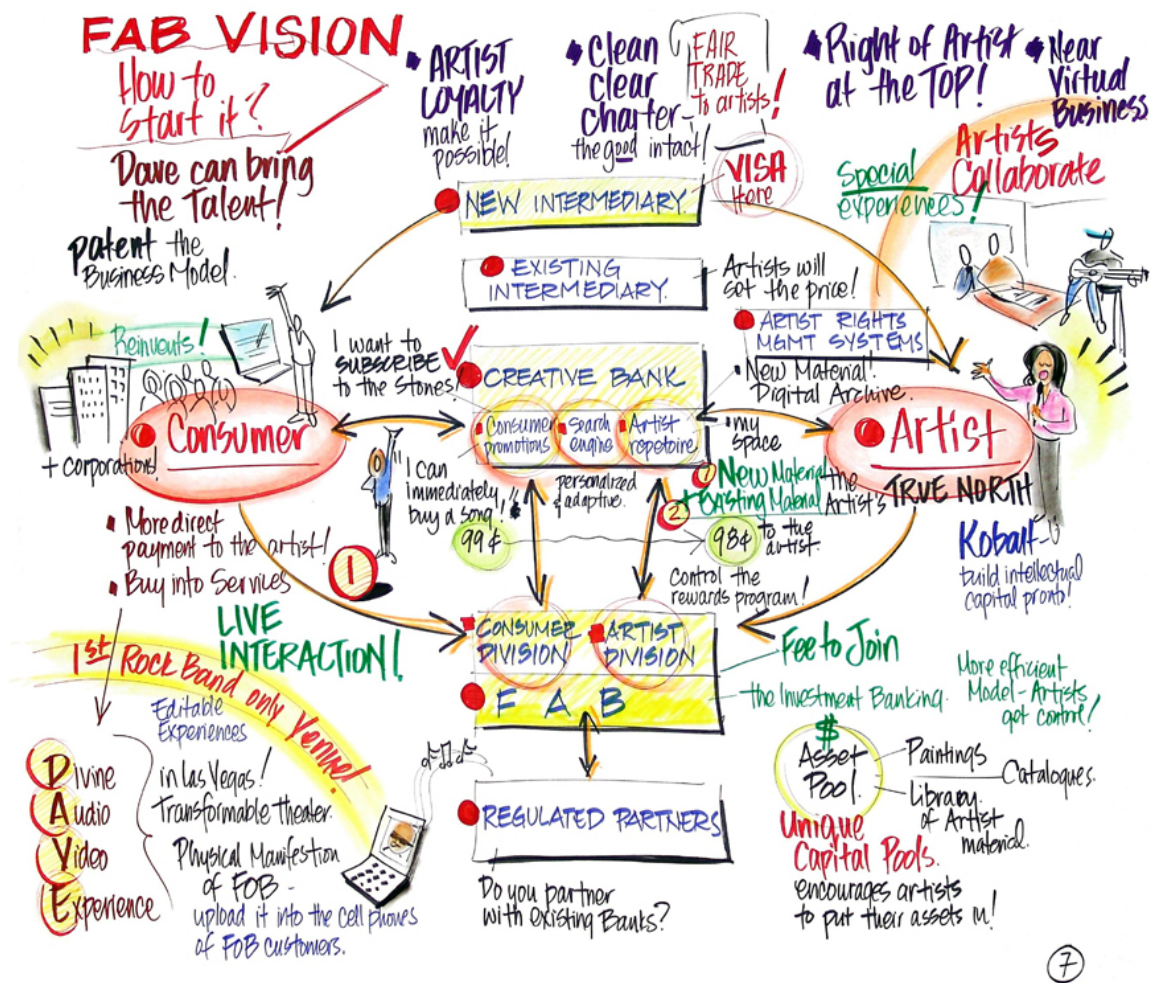 FAB VISION
How to
start it?
Dave can bring
the Talent!
patent the
Business Model.
• ARTIST
LOYALTY
make it
possible!
• Clean
clear
charter-
the good intact!
FAIR
TRADE
to artists!
• Right of Artist
at the TOP!
• Near
Virtual
Business
VISA
Here
Artists
Collaborate
Special
experiences!
NEW INTERMEDIARY.
EXISTING
INTERMEDIARY.
Artists will
set the price!
ARTIST RIGHTS
MGMT SYSTEMS
• New Material!
Digital Archive.
Reinvents!
I want to
SUBSCRIBE
to the Stones!
CREATIVE BANK
Consumer
promotions
Search
engine
Artist
repetoire
personalized
& adaptive.
Consumer
+ corporations!
• my
space
Artist
TRUE NORTH
I can
immediately
buy a song!
1 New Material - the
+ Existing Material Artist's
2
99¢
98¢ to the
artist.
Control the
rewards program!
Kobalt-
build intellectual
capital pronto!
• More direct
payment to the artist!
• Buy into Services
1
LIVE
INTERACTION!
1st Rock Band only Venue!
Editable
Experiences
CONSUMER
DIVISION
ARTIST
DIVISION
FAB
Fee to Join
the Investment Banking.
More efficient
Model - Artists
get control!
Divine
Audio
Video
Experience
in Las Vegas!
Transformable theater.
Physical Manifestion
of FOB -
upload it into the cell phones
of FOB customers.
REGULATED PARTNERS
Do you partner
with existing Banks?
$
Asset
Pool.
Paintings
Catalogues.
Library
of Artist
material.
Unique
Capital Pools.
encourages artists
to put their assets in!
7